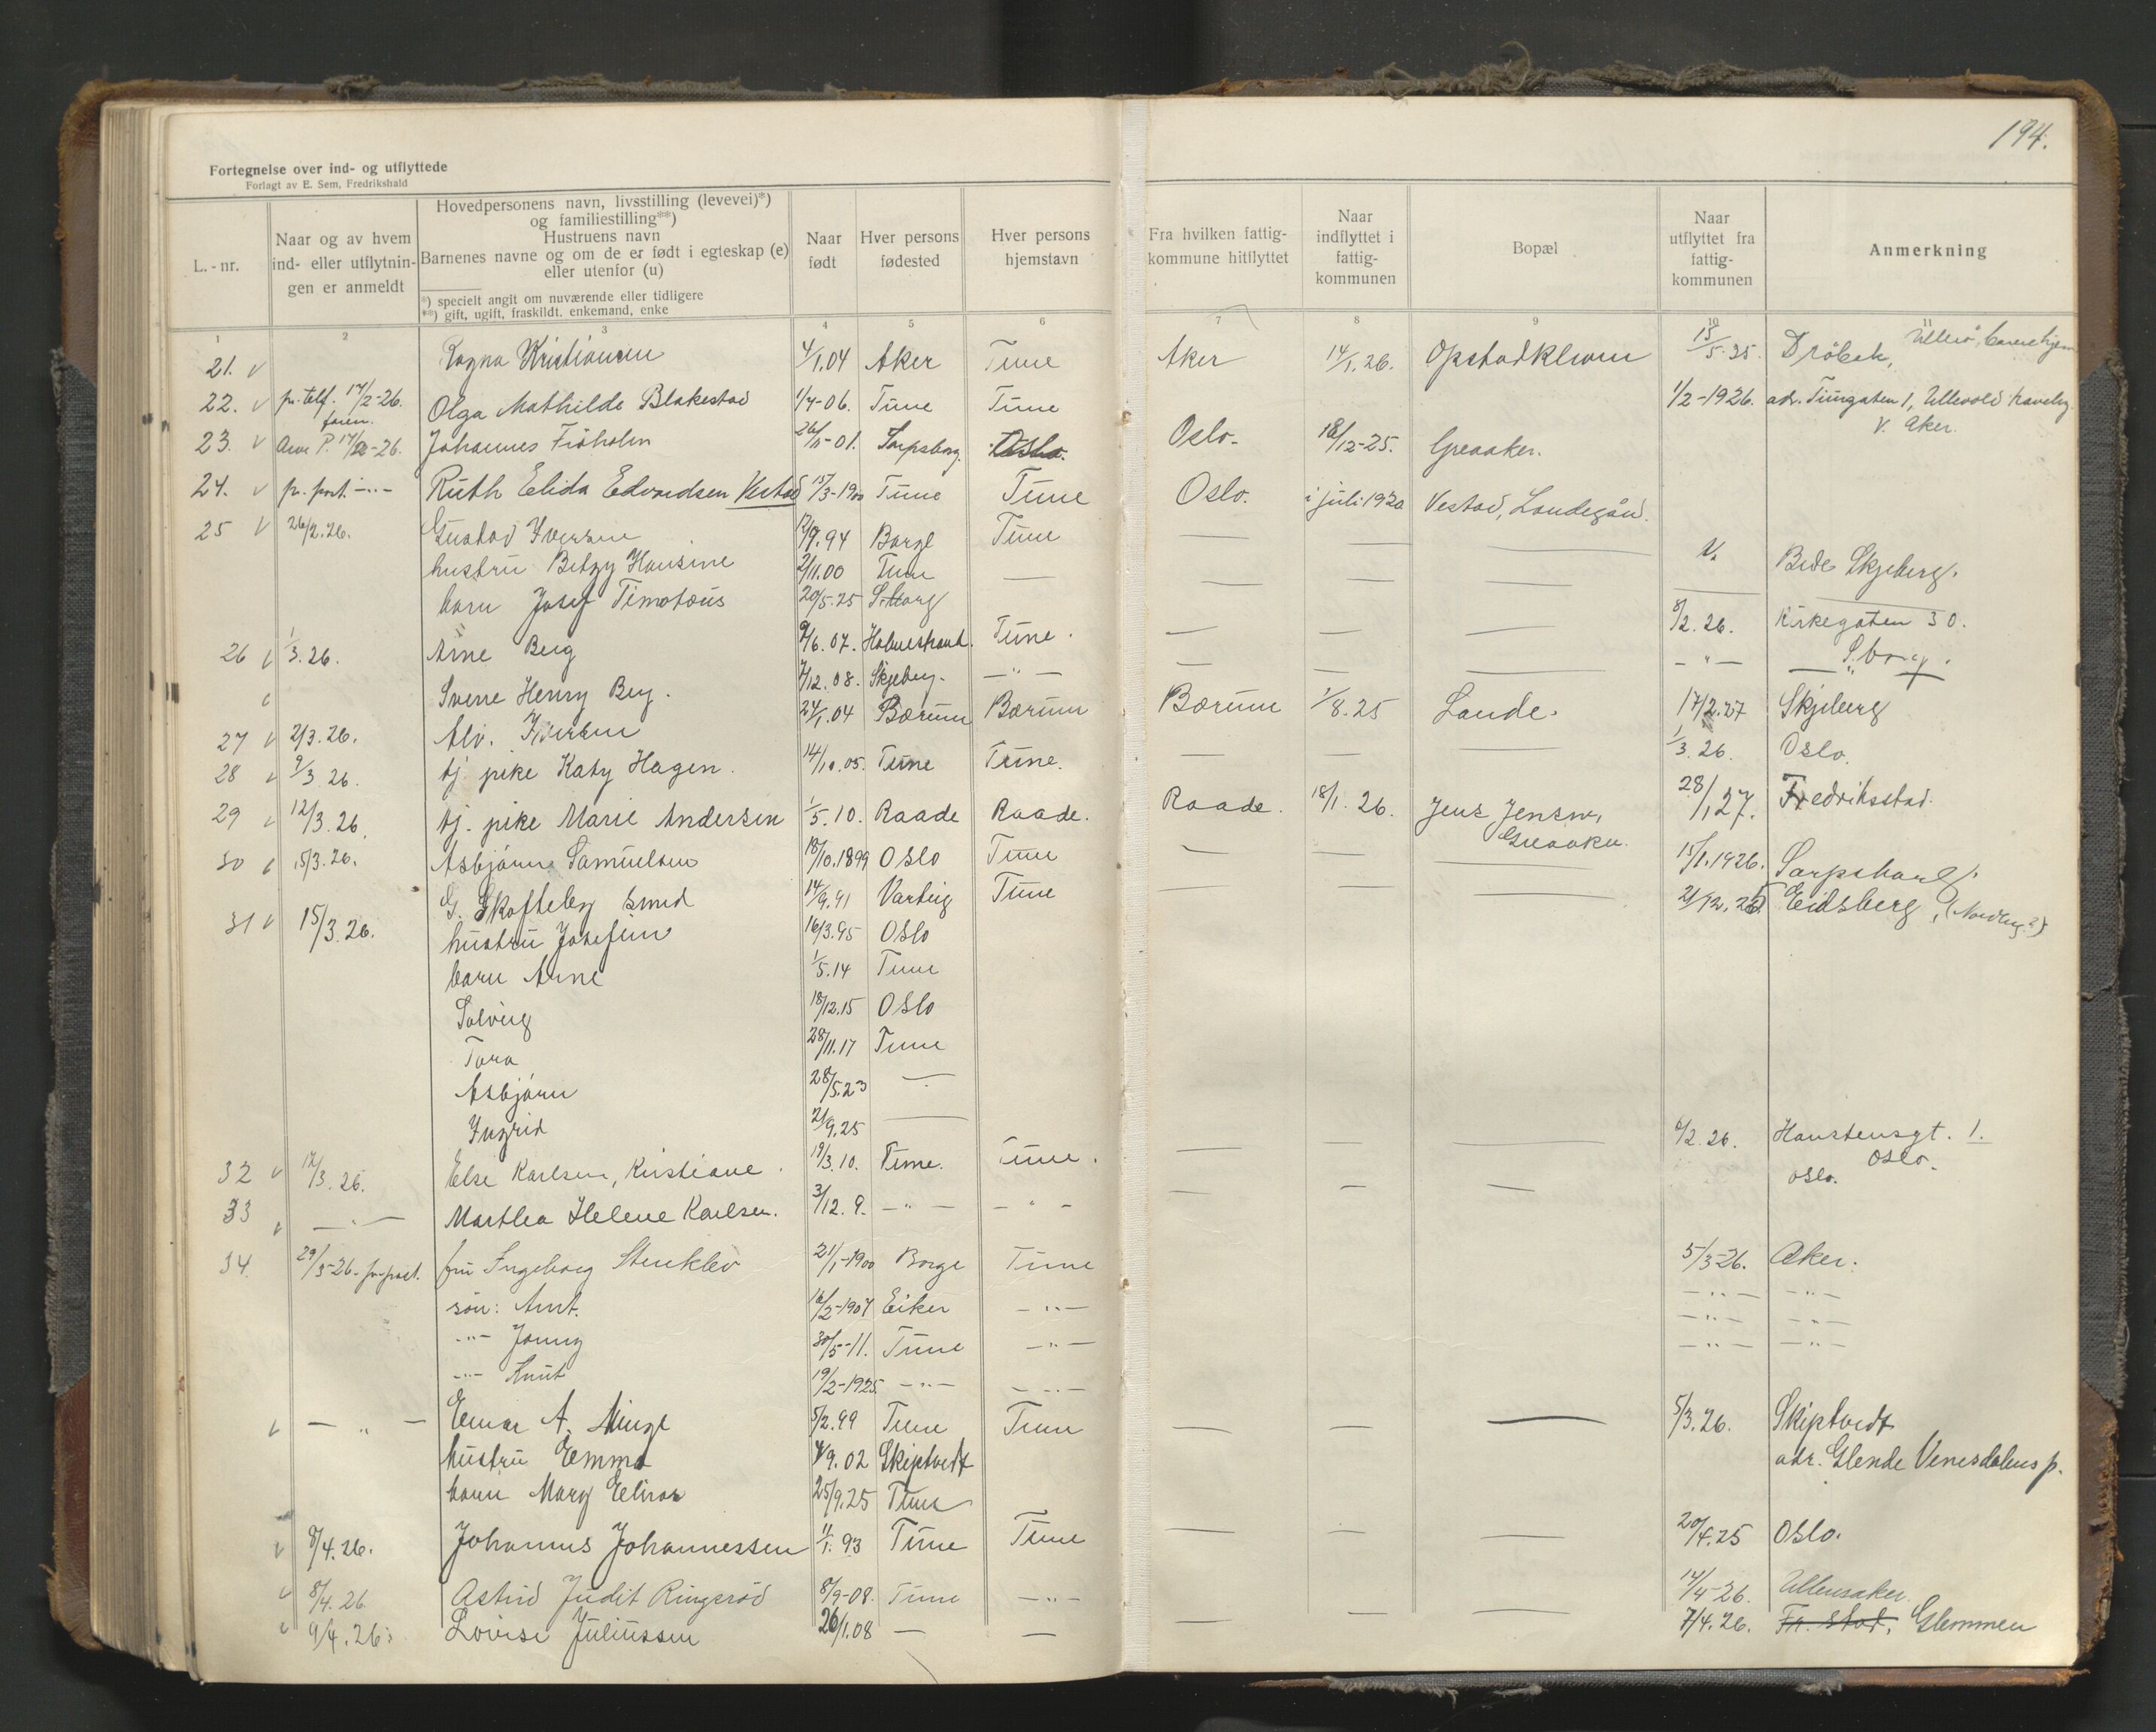 194.
Fortegnelse over ind- og utflyttede
Forlagt av E. Sem, Fredrikshald
L.-nr.
Naar og av hvem
ind- eller utflytnin-
gen er anmeldt
Hovedpersonens navn, livsstilling (levevei)*)
og familiestilling**)
Hustruens navn
Barnenes navne og om de er født i egteskap (e)
eller utenfor (u)
*) specielt angit om nuværende eller tidligere
**) gift, ugift, fraskildt. enkemand, enke
Naar
født
Hver persons
fødested
Hver persons
hjemstavn
Fra hvilken fattig-
kommune hitflyttet
Naar
indflyttet i
fattig-
kommunen
Bopæl
Naar
utflyttet fra
fattig-
kommunen
Anmerkning
1 2 3 4 5 6 7 8 9 10 11
21. v Ragna Kristiansen 4/1.04 Aker Tune Aker 14/1.26. Opstadkleven 15/5.35. Drøbak,
22. v pr. telf. 17/2-26. Olga Mathilde Blakestad 1/4-06. Tune Tune 1/2-1926. adr. Tüngaten 1, Ullevold haveby
faren. v. Aker.
23. v 17/2-26. Johannes Fioholm 26/11-01. Sarpsborg. Oslo. Oslo. 18/12-25. Greaaker.
24. v pr. post. -"- Ruth Elida Edvardsen Vestad 15/3-1900 Tune Tune Oslo. i juli 1920 Vestad, Landegård.
25 v 26/2.26. Gustav Iversen 12/9.94 Borge Tune — — —
hustru Betzy Hansine 2/11.00 Tune — — — — Bede Skjeberg.
barn Josef Timotæus 20/5.25 S.borg
26 v 1/3.26. Arne Berg 9/6.07. Holmestrand. Tune. — — — 8/2.26. Kirkegaten 30.
S.borg.
v Sverre Henry Berg. 7/12.08. Skjeberg. -"- — — — -"- -"-
27 v 2/3.26. Alv. Iversen 24/1.04 Bærum Bærum Bærum 1/8.25 Lande. 17/2.27 Skjeberg
28 v 9/3.26. tj. pike Katy Hagen. 14/10.05. Tune Tune. — — — 1/3.26. Oslo.
29 v 12/3.26. tj. pike Marie Andersen 1/5.10. Raade Raade. Raade. 18/1.26. Jens Jensen, 28/1.27. Fredriksstad.
Greaaker.
30 v 15/3.26. Asbjørn Samuelsen 18/10.1899 Oslo Tune — — — 15/1.1926. Sarpsborg.
31 v 15/3.26. G. Skofteby smed 14/9.91 Varteig Tune — — — 21/12.25 Eidsberg,
hustru Josefine 16/3.95 Oslo
barn Arne 1/5.14 Tune
Solveig 18/12.15 Oslo
Tora 28/11.17 Tune
Asbjørn 28/5.23 —
Ingrid 21/9.25 —
32 v 17/3.26. Else Karlsen, Kristiane. 19/3.10. Tune. Tune. — — — 6/2.26. Hanstensgt. 1.
Oslo.
33 v -"- Marthea Helene Karlsen. 3/12.9. -"- -"- — — — Oslo.
34 29/3-26. pr. post. fru Ingeborg Stenklev 21/1-1900 Borge Tune 5/3-26. Aker.
søn: Arnt. 16/2-1907 Eiker -"- -"- -"-
-"- Jonny 30/5-11. Tune -"- -"- -"-
-"- Knut 19/2-1925. -"- -"- -"- -"-
v -"- Einar A. Minge 5/2.99 Tune Tune — — — 5/3.26. Skiptvedt
hustru Emma 4/9.02 Skiptvedt adr. Glende Venesdalens p.
barn Mary Elinor 25/9.25 Tune
v 8/4.26. Johannes Johannessen 11/1.93 Tune Tune — — — 20/4.25 Oslo.
v 8/4.26 Astrid Judit Ringsrød 8/9-08. Tune -"- 14/4-26. Ullensaker.
v 9/4.26. Lovise Juliussen 26/1.08 — — — — — 7/4.26. Fr. stad, Glemmen